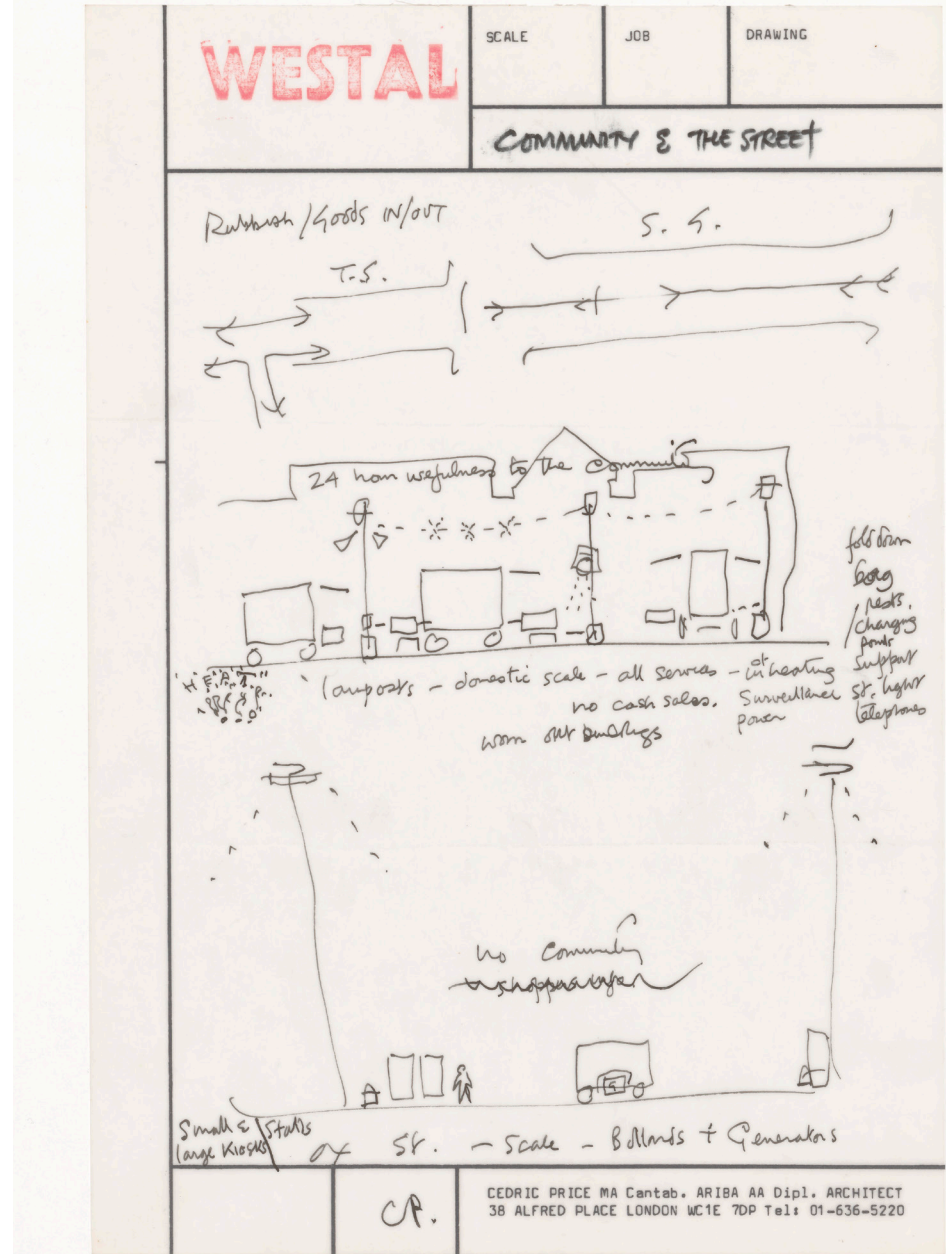 WESTAL
SCALE
JOB
DRAWING
COMMUNITY & THE STREET
Rubbish/Goods IN/OUT
S. G.
T.S.
24 hour usefulness to the Community
fold down
rests,
changing
support
st. light
telephones
HEAT
lamposts – domestic scale – all services – heating
no cash sales. Surveillance
power
worn out buildings
no Community
Small & / Stalls
large Kiosks
Ox St. – Scale – Bollards + Generators
CP.
CEDRIC PRICE MA Cantab. ARIBA AA Dipl. ARCHITECT
38 ALFRED PLACE LONDON WC1E 7DP Tel: 01-636-5220